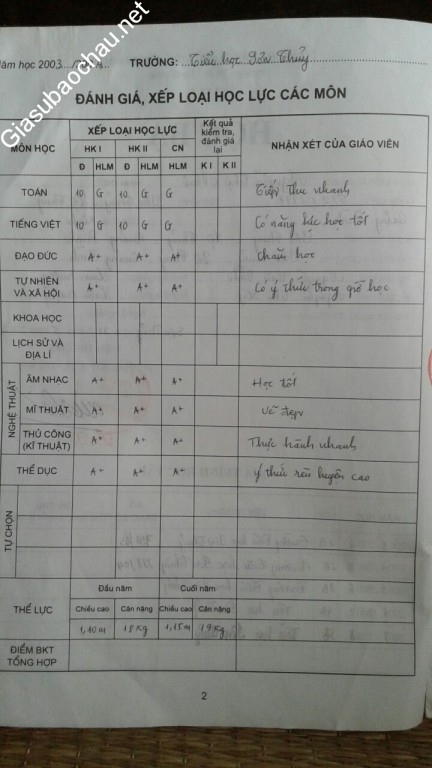 Giasubaochau.net
Năm học 2003... TRƯỜNG: Tiểu học Yên Thủy
ĐÁNH GIÁ, XẾP LOẠI HỌC LỰC CÁC MÔN
MÔN HỌC XẾP LOẠI HỌC LỰC Kết quả kiểm tra, đánh giá lại NHẬN XÉT CỦA GIÁO VIÊN
HK I HK II CN
Đ HLM Đ HLM HLM K I K II
TOÁN 10 G 10 G G Tiếp thu nhanh
TIẾNG VIỆT 10 G 10 G G Có năng lực học tốt
ĐẠO ĐỨC A+ A+ A+ Chăm học
TỰ NHIÊN VÀ XÃ HỘI A+ A+ A+ Có ý thức trong giờ học
KHOA HỌC
LỊCH SỬ VÀ ĐỊA LÍ
NGHỆ THUẬT
ÂM NHẠC A+ A+ A+ Học tốt
MĨ THUẬT A+ A+ A+ Vẽ đẹp
THỦ CÔNG (KĨ THUẬT) A+ A+ A+ Thực hành nhanh
THỂ DỤC A+ A+ A+ ý thức rèn luyện cao
TỰ CHỌN
THỂ LỰC Đầu năm Cuối năm
Chiều cao Cân nặng Chiều cao Cân nặng
1,10m 18kg 1,15m 19kg
ĐIỂM BKT TỔNG HỢP
2